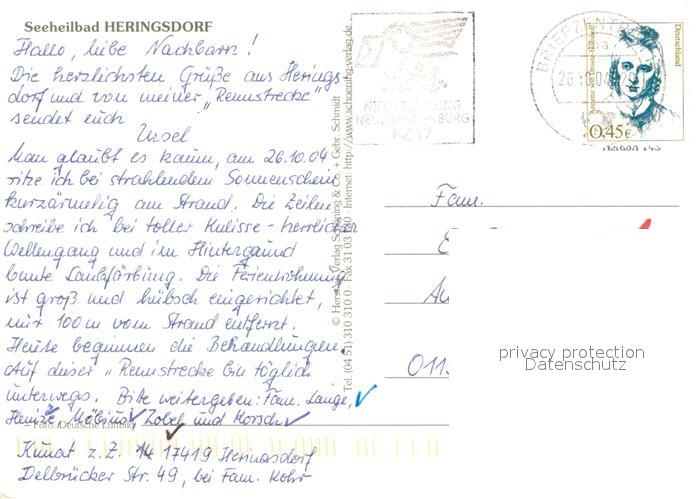 Seeheilbad HERINGSDORF
Hallo, liebe Nachbarn!
Die herzlichsten Grüße aus Herings-
dorf und von meiner „Rennstrecke"
sendet euch
Ursel
Man glaubt es kaum, am 26.10.04
sitze ich bei strahlendem Sonnenschein
kurzärmelig am Strand. Die Zeilen
schreibe ich bei toller Kulisse - herrlicher
Wellengang und im Hintergrund
bunte Laubfärbung. Die Ferienwohnung
ist groß und hübsch eingerichtet,
nur 100 m vom Strand entfernt.
Heute beginnen die Behandlungen.
Auf dieser „Rennstrecke bin täglich
unterwegs. Bitte weitergeben: Fam. Lange,
Heinze, Möbius, Zobel und Korsch
Foto: Deutsche Luftbild
Kunat z. Z. 17419 Heringsdorf
Delbrücker Str. 49, bei Fam. Kohr
© Herst. u. Verlag Schöning & Co. + Gebr. Schmidt
Tel. (04 51) 310 310 · Fax 31 03 · Internet: http://www.schoening-verlag.de
NEUBRANDENBURG
BRIEFZENTR
26.10.04
Deutschland
Annette von Droste-Hülshoff
0,45€
Fam.
011
privacy protection
Datenschutz